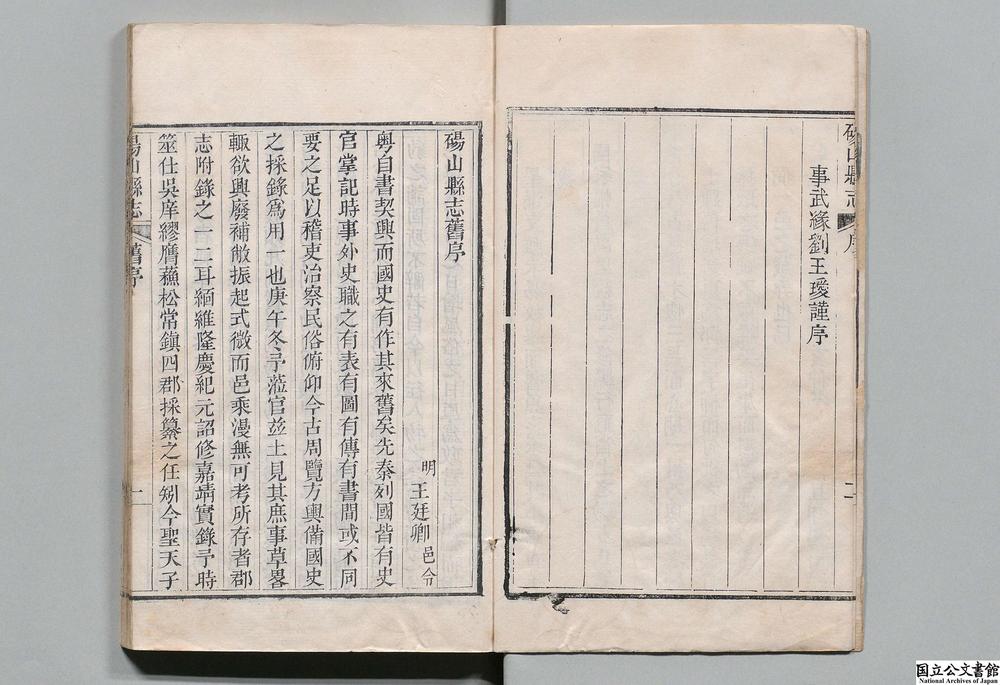 碭山縣志 序 二
事武緣劉王璦謹序
碭山縣志舊序
明 王廷卿 邑令
粵自書契興而國史有作其來舊矣先秦列國皆有史
官掌記時事外史職之有表有圖有傳有書間或不同
要之足以稽吏治察民俗俯仰今古周覽方輿備國史
之採錄爲用一也庚午冬予蒞官茲土見其庶事草畧
輙欲興廢補敝振起式微而邑乘漫無可考所存者郡
志附錄之一二耳緬維隆慶紀元詔修嘉靖實錄予時
筮仕吳庠繆膺蘓松常鎮四郡採纂之任矧今聖天子
碭山縣志 舊序 一
国立公文書館
National Archives of Japan